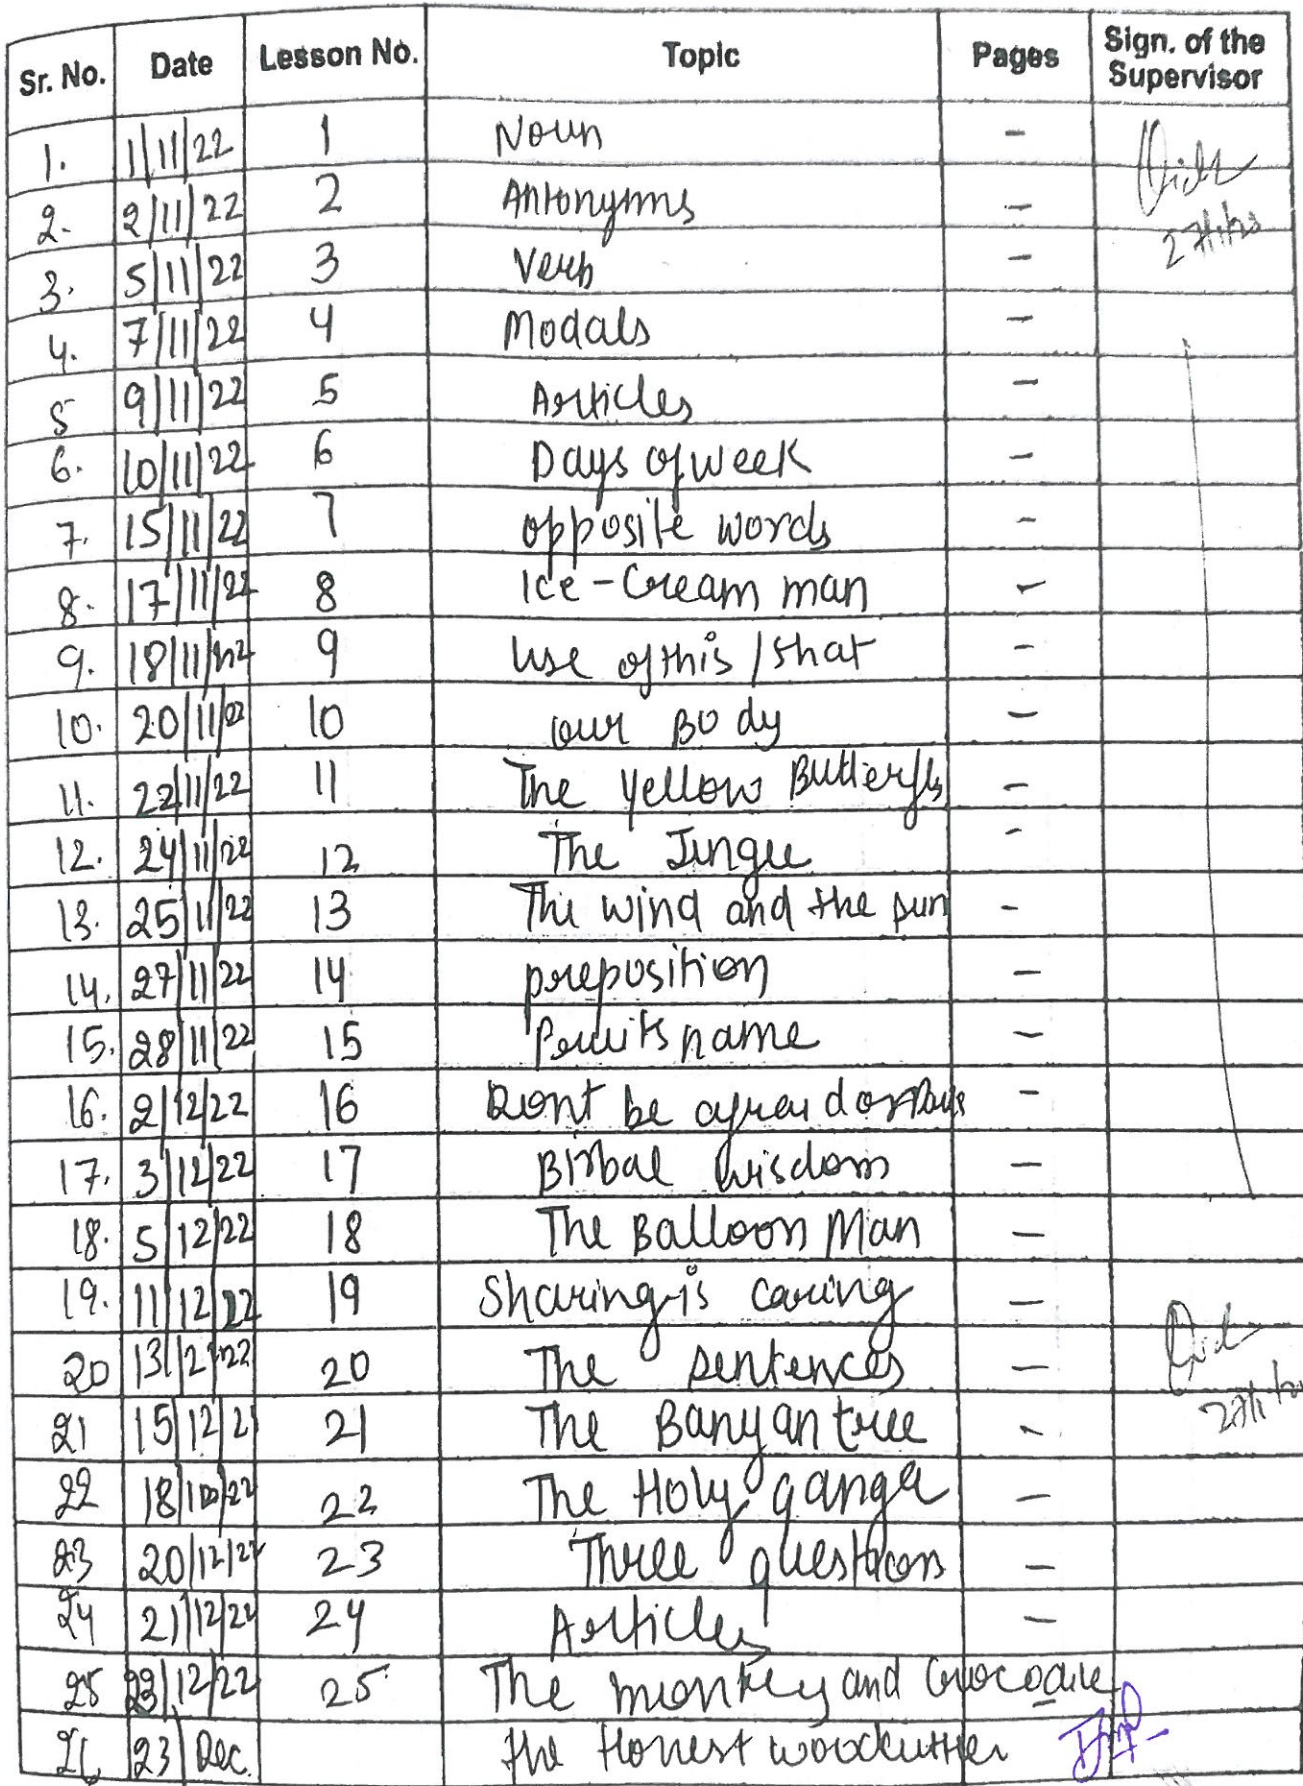 Sr. No. Date Lesson No. Topic Pages Sign. of the Supervisor
1. 1/11/22 1 Noun -
2. 2/11/22 2 Antonyms -
3. 5/11/22 3 Verb -
4. 7/11/22 4 Modals -
5 9/11/22 5 Articles -
6. 10/11/22 6 Days of week -
7. 15/11/22 7 opposite words -
8. 17/11/22 8 Ice-Cream man -
9. 18/11/22 9 Use of this / that -
10. 20/11/22 10 our Body -
11. 22/11/22 11 The Yellow Butterfly -
12. 24/11/22 12 The -
13. 25/11/22 13 The wind and the sun -
14. 27/11/22 14 preposition -
15. 28/11/22 15 Fruits name -
16. 2/12/22 16 Dont be -
17. 3/12/22 17 Birbal wisdom -
18. 5/12/22 18 The Balloon Man -
19. 11/12/22 19 Sharing is caring -
20 13/12/22 20 The sentences -
21 15/12/2 21 The Banyan tree -
22 22 The Holy ganga -
23 20/12/22 23 Three questions -
24 21/12/22 24 Articles -
25 23/12/22 25 The monkey and Crocodile
26 23 Dec. the Honest woodcutter